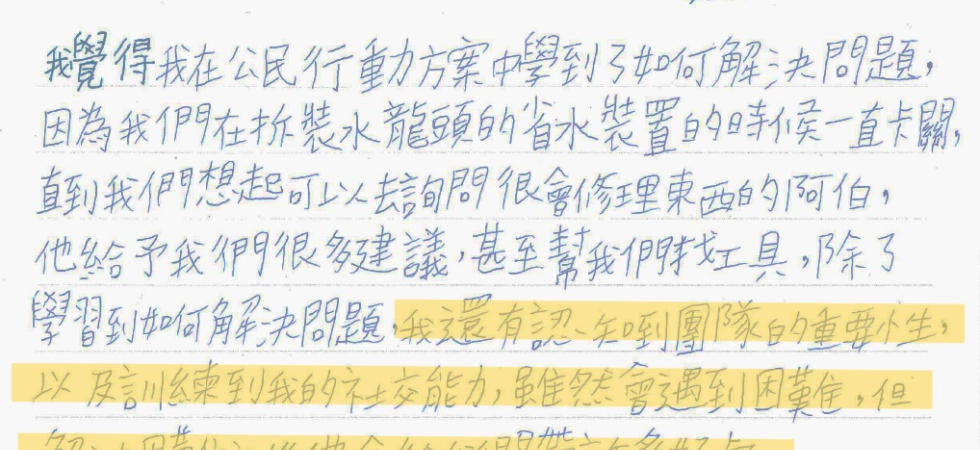 我覺得我在公民行動方案中學到了如何解決問題，
因為我們在拆裝水龍頭的省水裝置的時候一直卡關，
直到我們想起可以去詢問很會修理東西的阿伯，
他給予我們很多建議，甚至幫我們找工具，除了
學習到如何解決問題，我還有認知到團隊的重要性，
以及訓練到我的社交能力，雖然會遇到困難，但